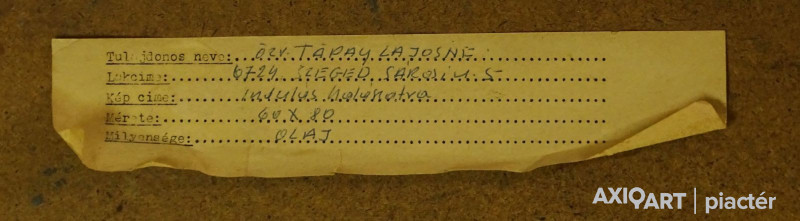 Tulajdonos neve: ÖZV. TÁPAY LAJOSNÉ
Lakcime: 6724 SZEGED SÁROSI U. 5
Kép cime: Indulás
Mérete: 60 X 80
Milyensége: OLAJ
AXIOART | piactér